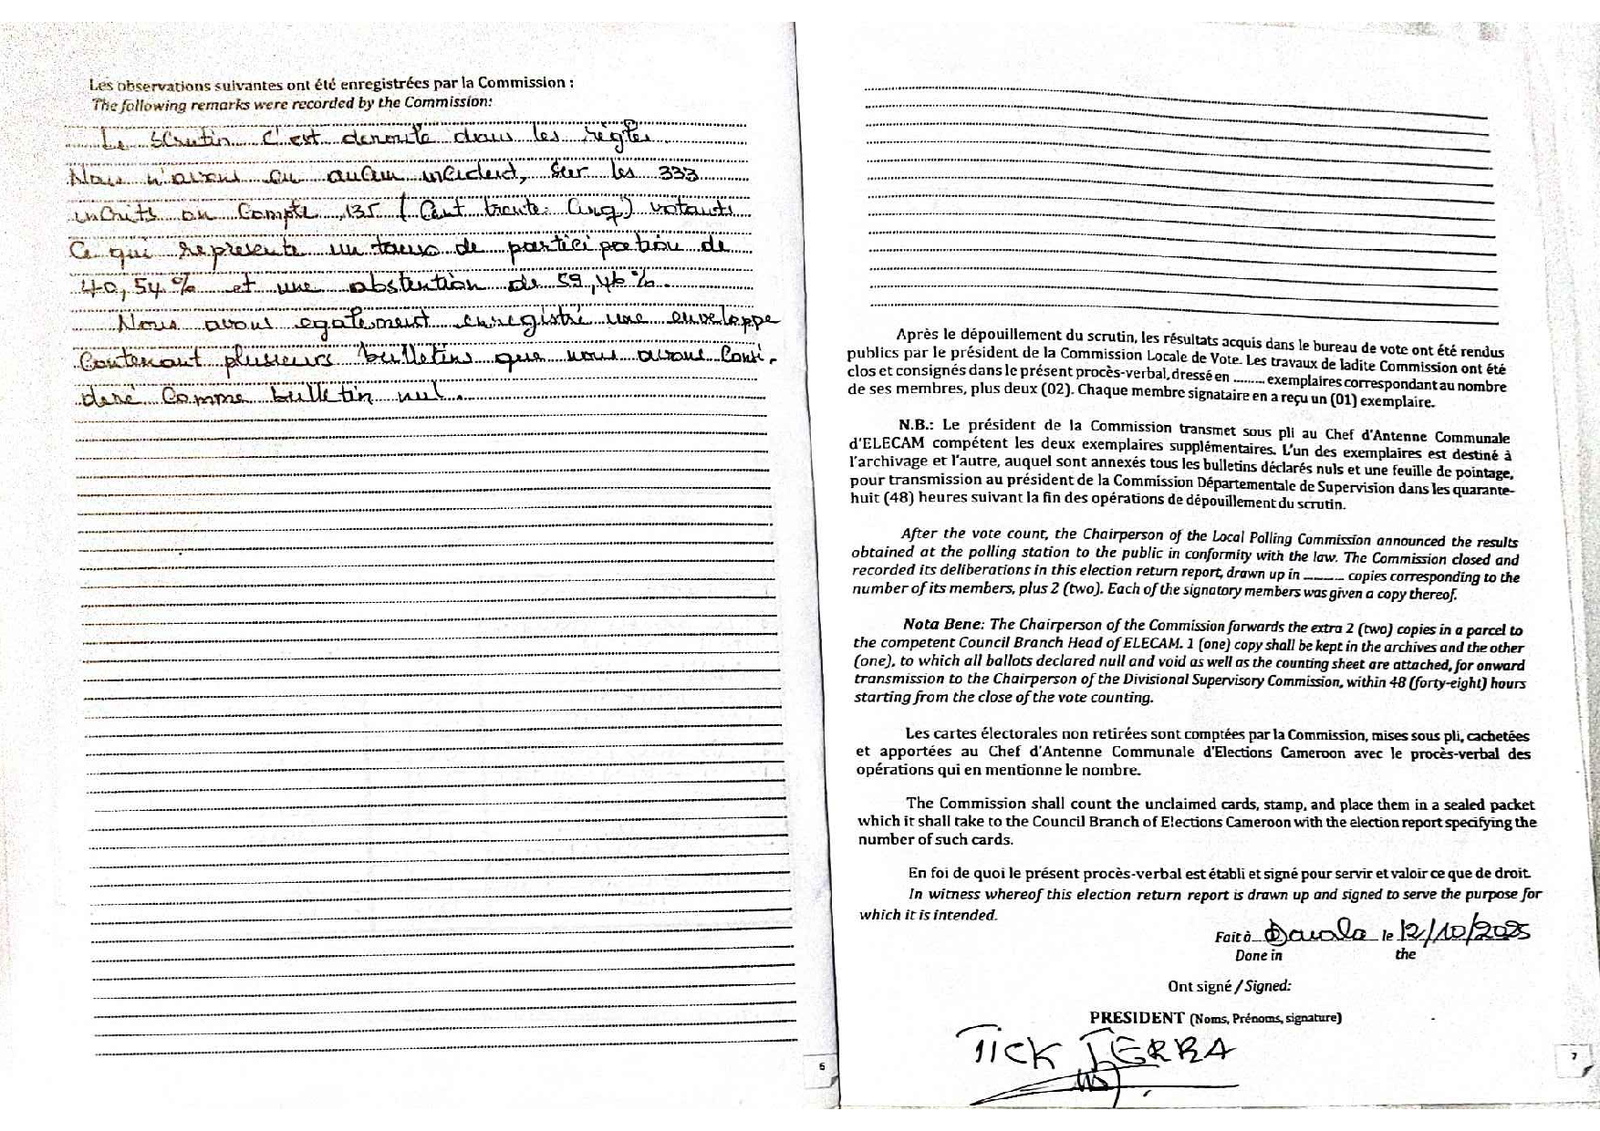 Les observations suivantes ont été enregistrées par la Commission :
The following remarks were recorded by the Commission:
Le scrutin c'est deroulé dans les règles
Nous n'avons eu aucun incident, sur les 333
inscrits on compte 135 (Cent trente-Cinq) votants
Ce qui represente un taux de participation de
40,54 % et une abstention de 59,46 %.
Nous avons egalement enregistré une enveloppe
Contenant plusieurs bulletins que nous avons consi-
deré comme bulletin nul.
6
Après le dépouillement du scrutin, les résultats acquis dans le bureau de vote ont été rendus
publics par le président de la Commission Locale de Vote. Les travaux de ladite Commission ont été
clos et consignés dans le présent procès-verbal, dressé en ......... exemplaires correspondant au nombre
de ses membres, plus deux (02). Chaque membre signataire en a reçu un (01) exemplaire.
N.B.: Le président de la Commission transmet sous pli au Chef d'Antenne Communale
d'ELECAM compétent les deux exemplaires supplémentaires. L'un des exemplaires est destiné à
l'archivage et l'autre, auquel sont annexés tous les bulletins déclarés nuls et une feuille de pointage,
pour transmission au président de la Commission Départementale de Supervision dans les quarante-
huit (48) heures suivant la fin des opérations de dépouillement du scrutin.
After the vote count, the Chairperson of the Local Polling Commission announced the results
obtained at the polling station to the public in conformity with the law. The Commission closed and
recorded its deliberations in this election return report, drawn up in ......... copies corresponding to the
number of its members, plus 2 (two). Each of the signatory members was given a copy thereof.
Nota Bene: The Chairperson of the Commission forwards the extra 2 (two) copies in a parcel to
the competent Council Branch Head of ELECAM. 1 (one) copy shall be kept in the archives and the other
(one), to which all ballots declared null and void as well as the counting sheet are attached, for onward
transmission to the Chairperson of the Divisional Supervisory Commission, within 48 (forty-eight) hours
starting from the close of the vote counting.
Les cartes électorales non retirées sont comptées par la Commission, mises sous pli, cachetées
et apportées au Chef d'Antenne Communale d'Elections Cameroon avec le procès-verbal des
opérations qui en mentionne le nombre.
The Commission shall count the unclaimed cards, stamp, and place them in a sealed packet
which it shall take to the Council Branch of Elections Cameroon with the election report specifying the
number of such cards.
En foi de quoi le présent procès-verbal est établi et signé pour servir et valoir ce que de droit.
In witness whereof this election return report is drawn up and signed to serve the purpose for
which it is intended.
Fait à Douala le 12/10/2025
Done in the
Ont signé / Signed:
PRESIDENT (Noms, Prénoms, signature)
TICK
7